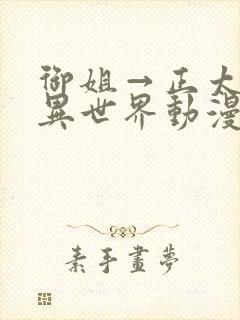 御姐→正太
異世界動漫
素手畫夢